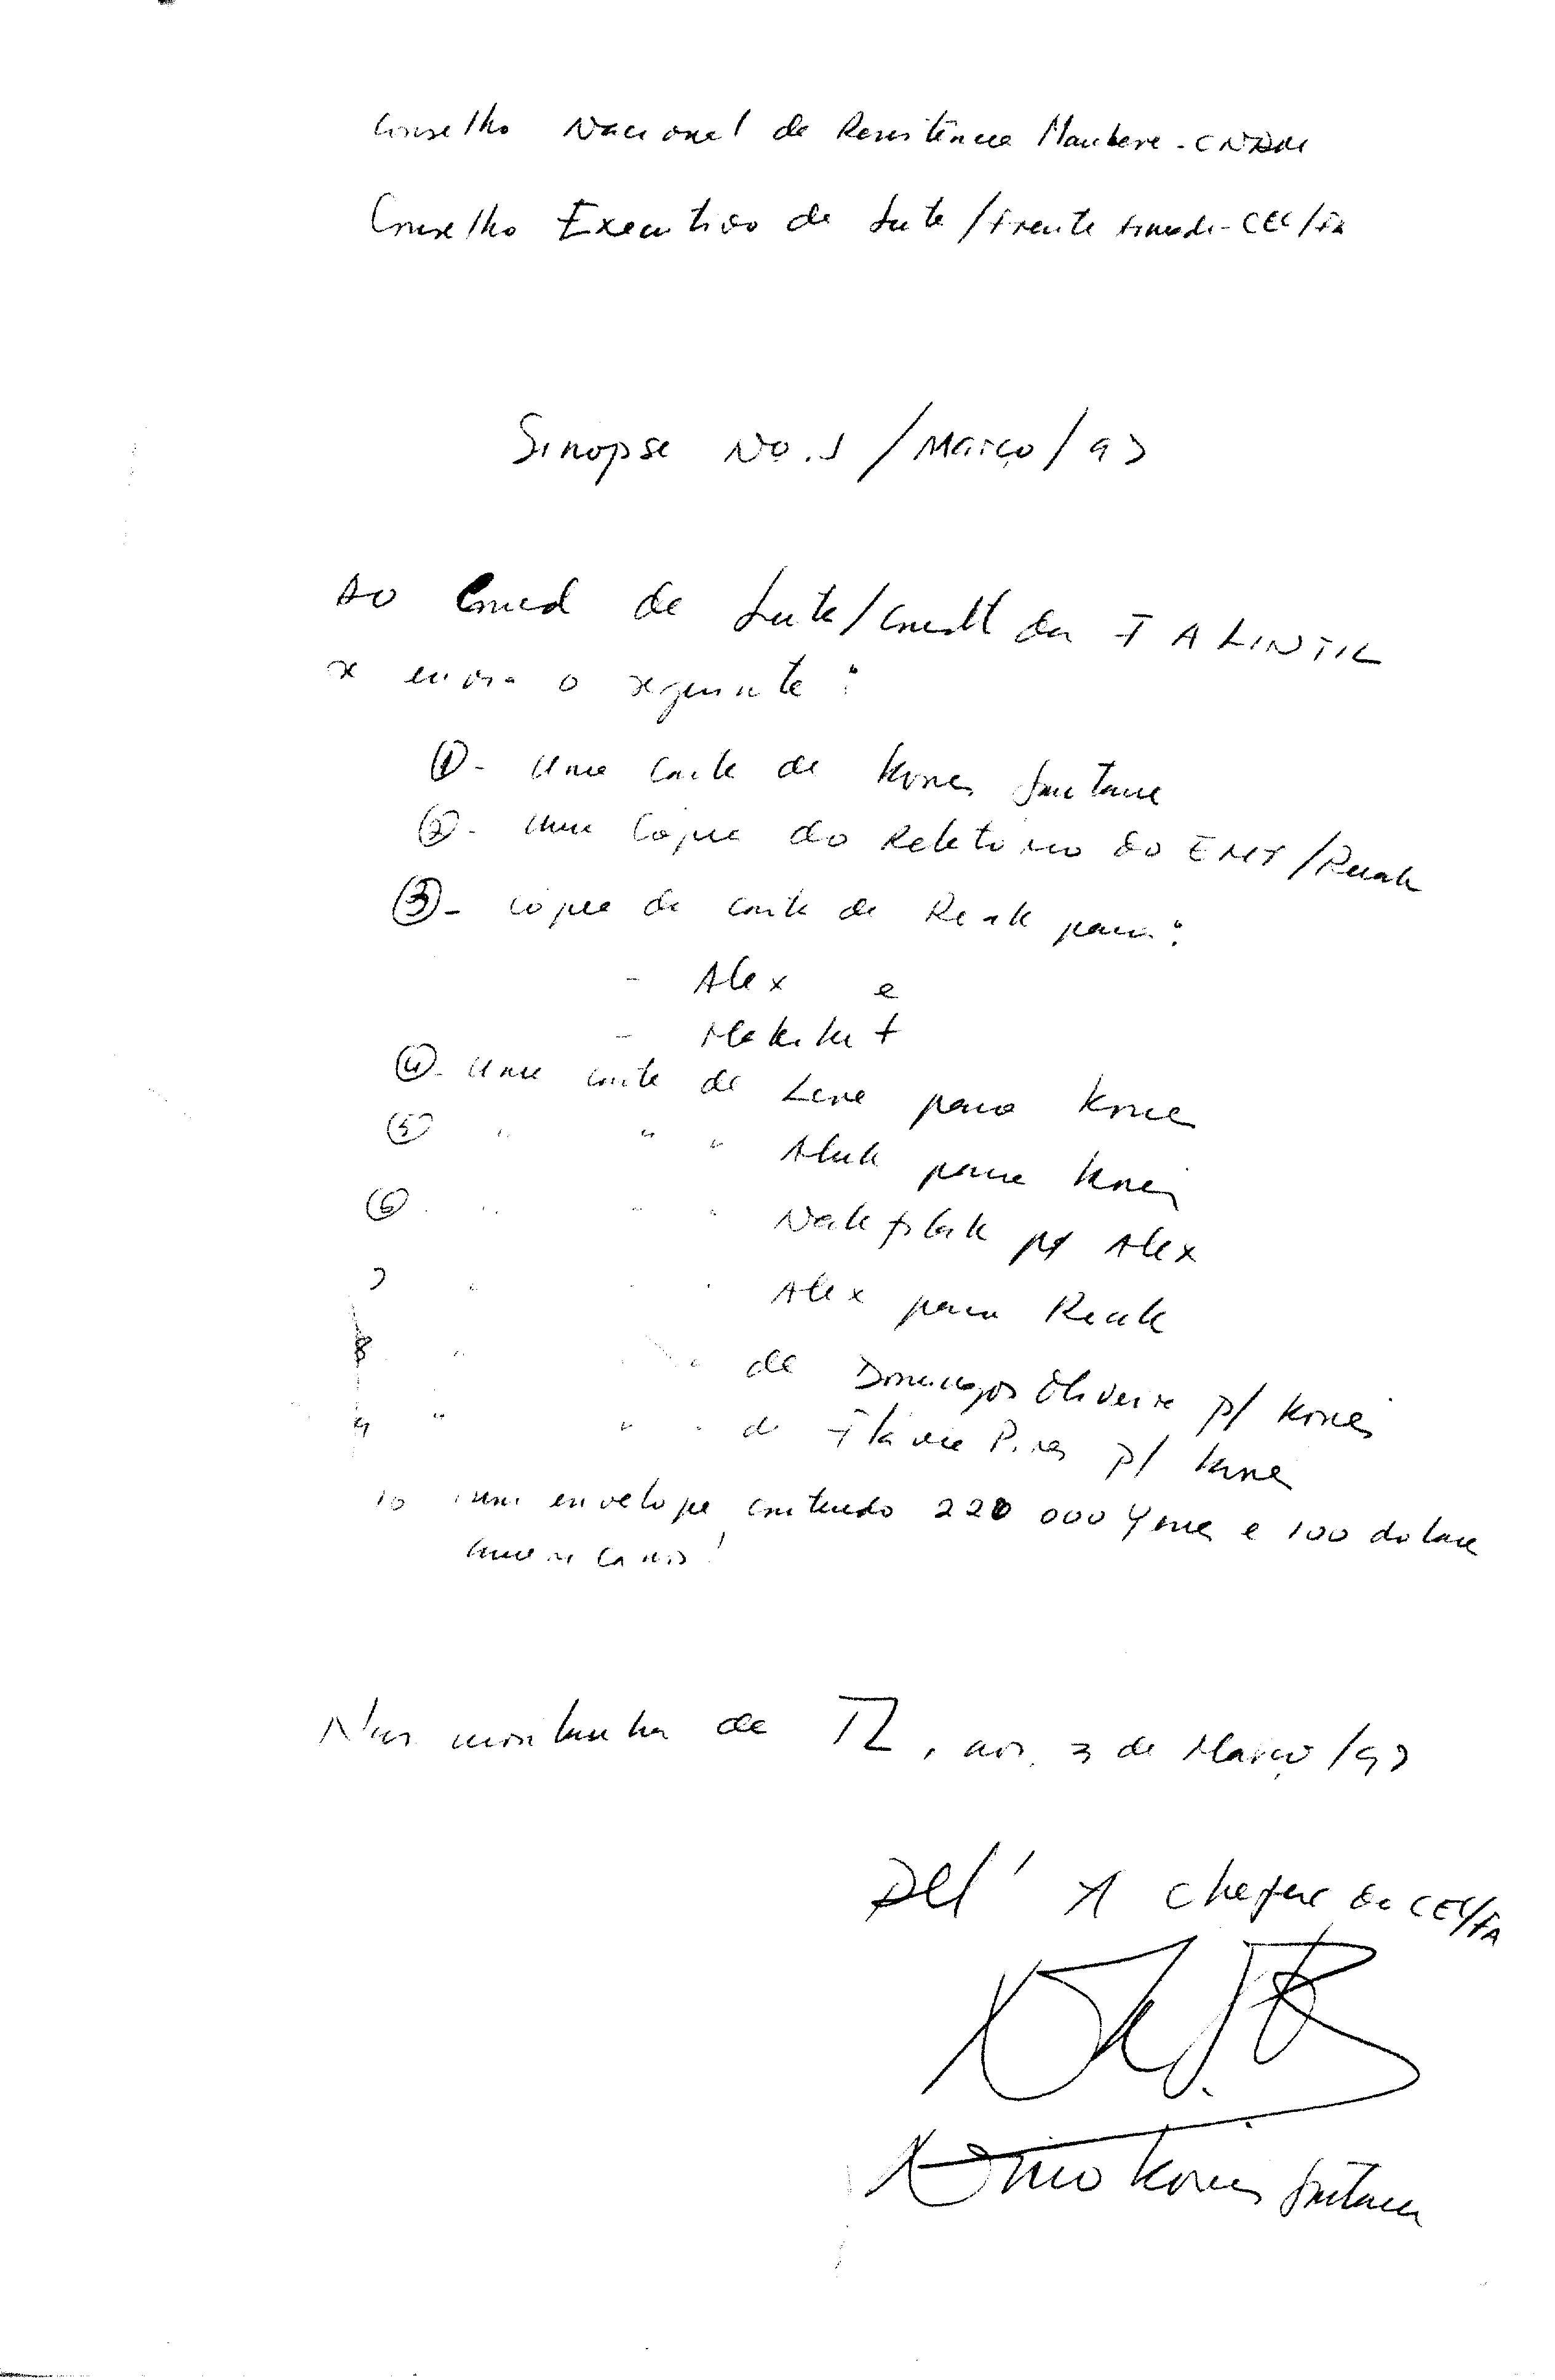 Conselho Nacional de Resistência Maubere - CNRM
Conselho Executivo de Luta/Frente Armada - CEL/FA
Sinopse No. 1/Março/97
Ao Comd de Luta/Comdt da FALINTIL
se envia o seguinte:
① - Uma carta de Konis Santana
② - Uma Cópia do Relatório do EMF/Ruak
③ - cópia da carta de Ruak para:
- Alex e
- Makikit
④ - Uma carta de Lere para Konis
⑤ " " " Aluk para Konis
⑥ " " " p/ Alex
7 " " " Alex para Ruak
8 " " " de Domingos Oliveira p/ Konis
9 " " " de Flávia Pires p/ Konis
10 um envelope contendo 220 000 Yenes e 100 dolares
americanos!
Nas montanhas de TL, aos, 3 de Março/97
Del' A chefia do CEL/FA
Nino Konis Santana